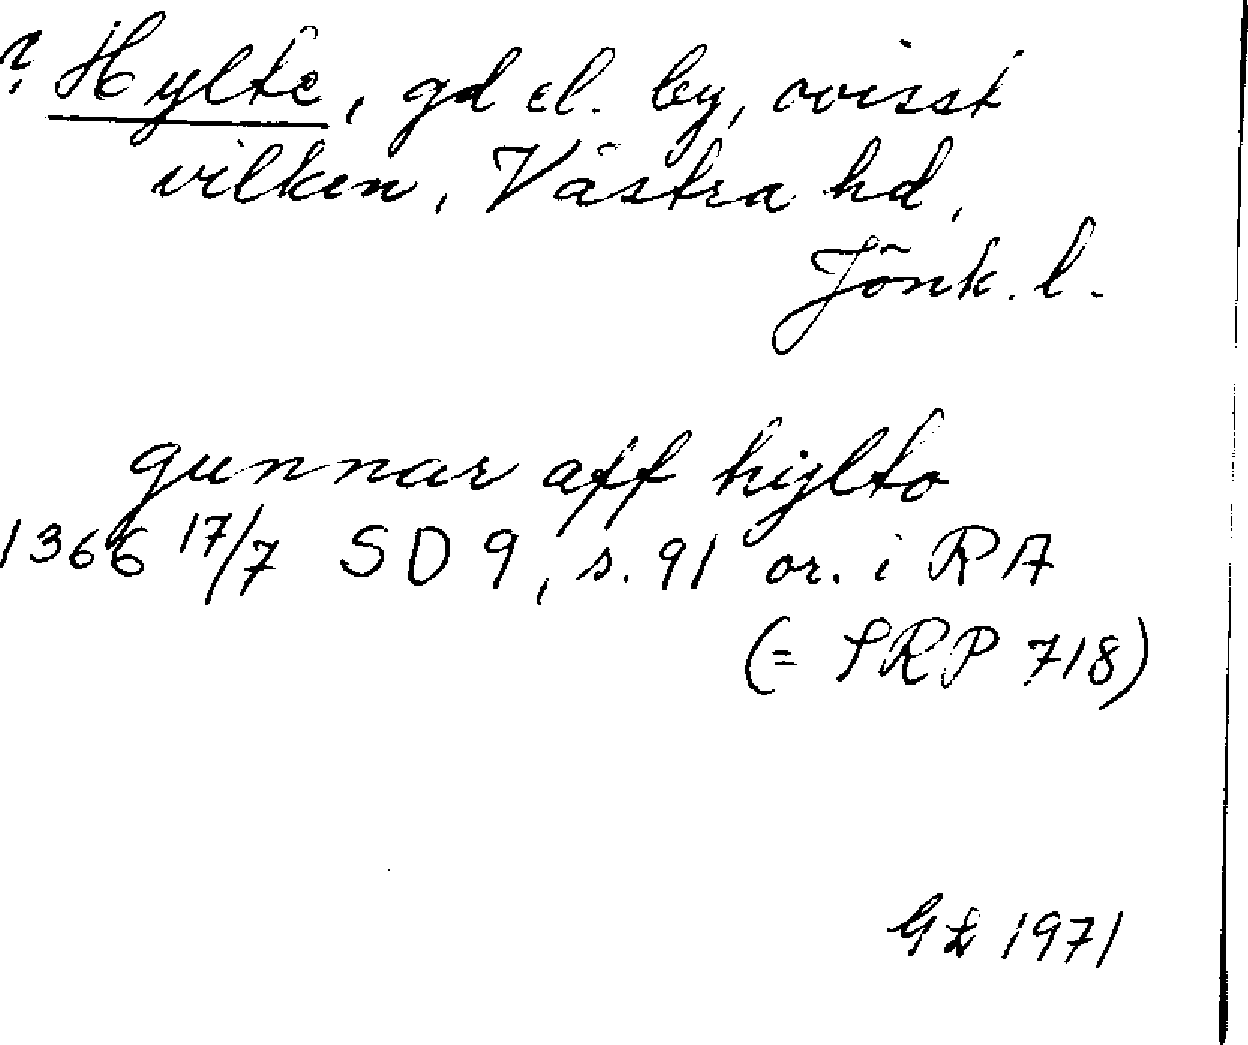 ? Hylte, gd el. by, ovisst
vilken, Västra hd,
Jönk. l.
gunnar aff hylto
1366 17/7 SD 9, s. 91 or. i RA
(= SRP 718)
1971